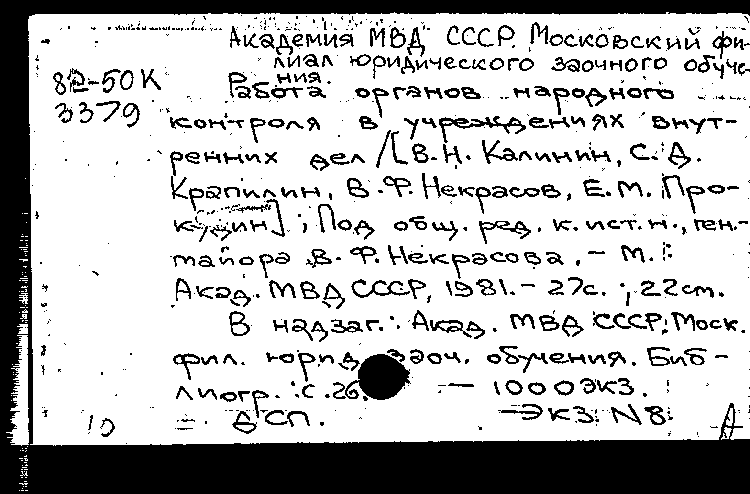 Академия МВД СССР. Московский фи-
лиал юридического заочного обуче-
ния.
82-50К
Работа органов народного
3379
контроля в учреждениях внут-
ренних дел /[В.Н. Калинин, С.Д.
Крапилин, В.Ф. Некрасов, Е.М. Про-
кудин] ; Под общ. ред. к. ист. н., ген.-
майора В.Ф. Некрасова. - М. :
Акад. МВД СССР, 1981. - 27с. ; 22см.
В надзаг.: Акад. МВД СССР, Моск.
фил. юрид. заоч. обучения. Биб-
лиогр.: с. 26. — 1000 экз.
10 = ДСП. - Экз. N 8. А